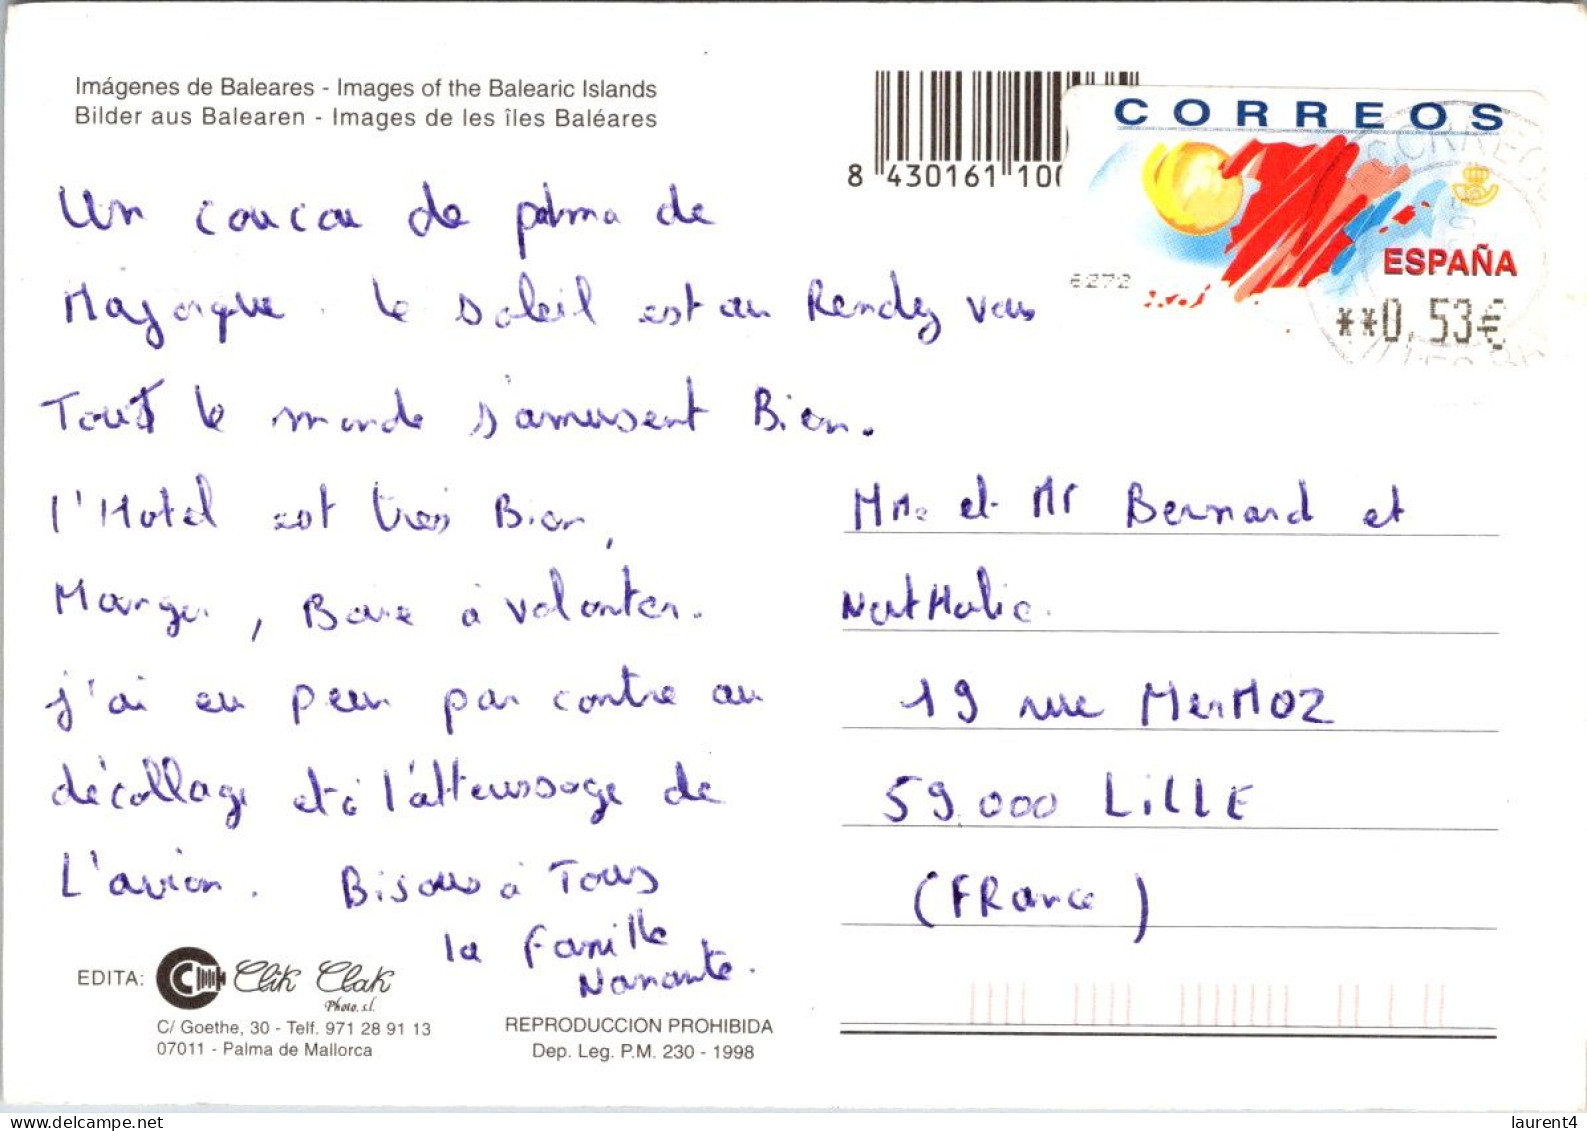 Imágenes de Baleares - Images of the Balearic Islands
Bilder aus Balearen - Images de les îles Baléares
8 430161 100
CORREOS
ESPAÑA
6272
**0,53€
Un coucou de palma de
Majorque. le soleil est au Rendez vous
Tout le monde s'amusent Bien.
l'Hotel est très Bien,
Manger, Boire à volonter.
j'ai eu peur par contre au
décollage et à l'atterissage de
L'avion. Bisous à Tous
la famille
Nanante.
Mme et Mr Bernard et
NatHalie.
19 rue MerMOZ
59.000 LiLLE
(FRance)
EDITA: Clik Clak
Photo, s.l.
C/ Goethe, 30 - Telf. 971 28 91 13
07011 - Palma de Mallorca
REPRODUCCION PROHIBIDA
Dep. Leg. P.M. 230 - 1998
laurent4